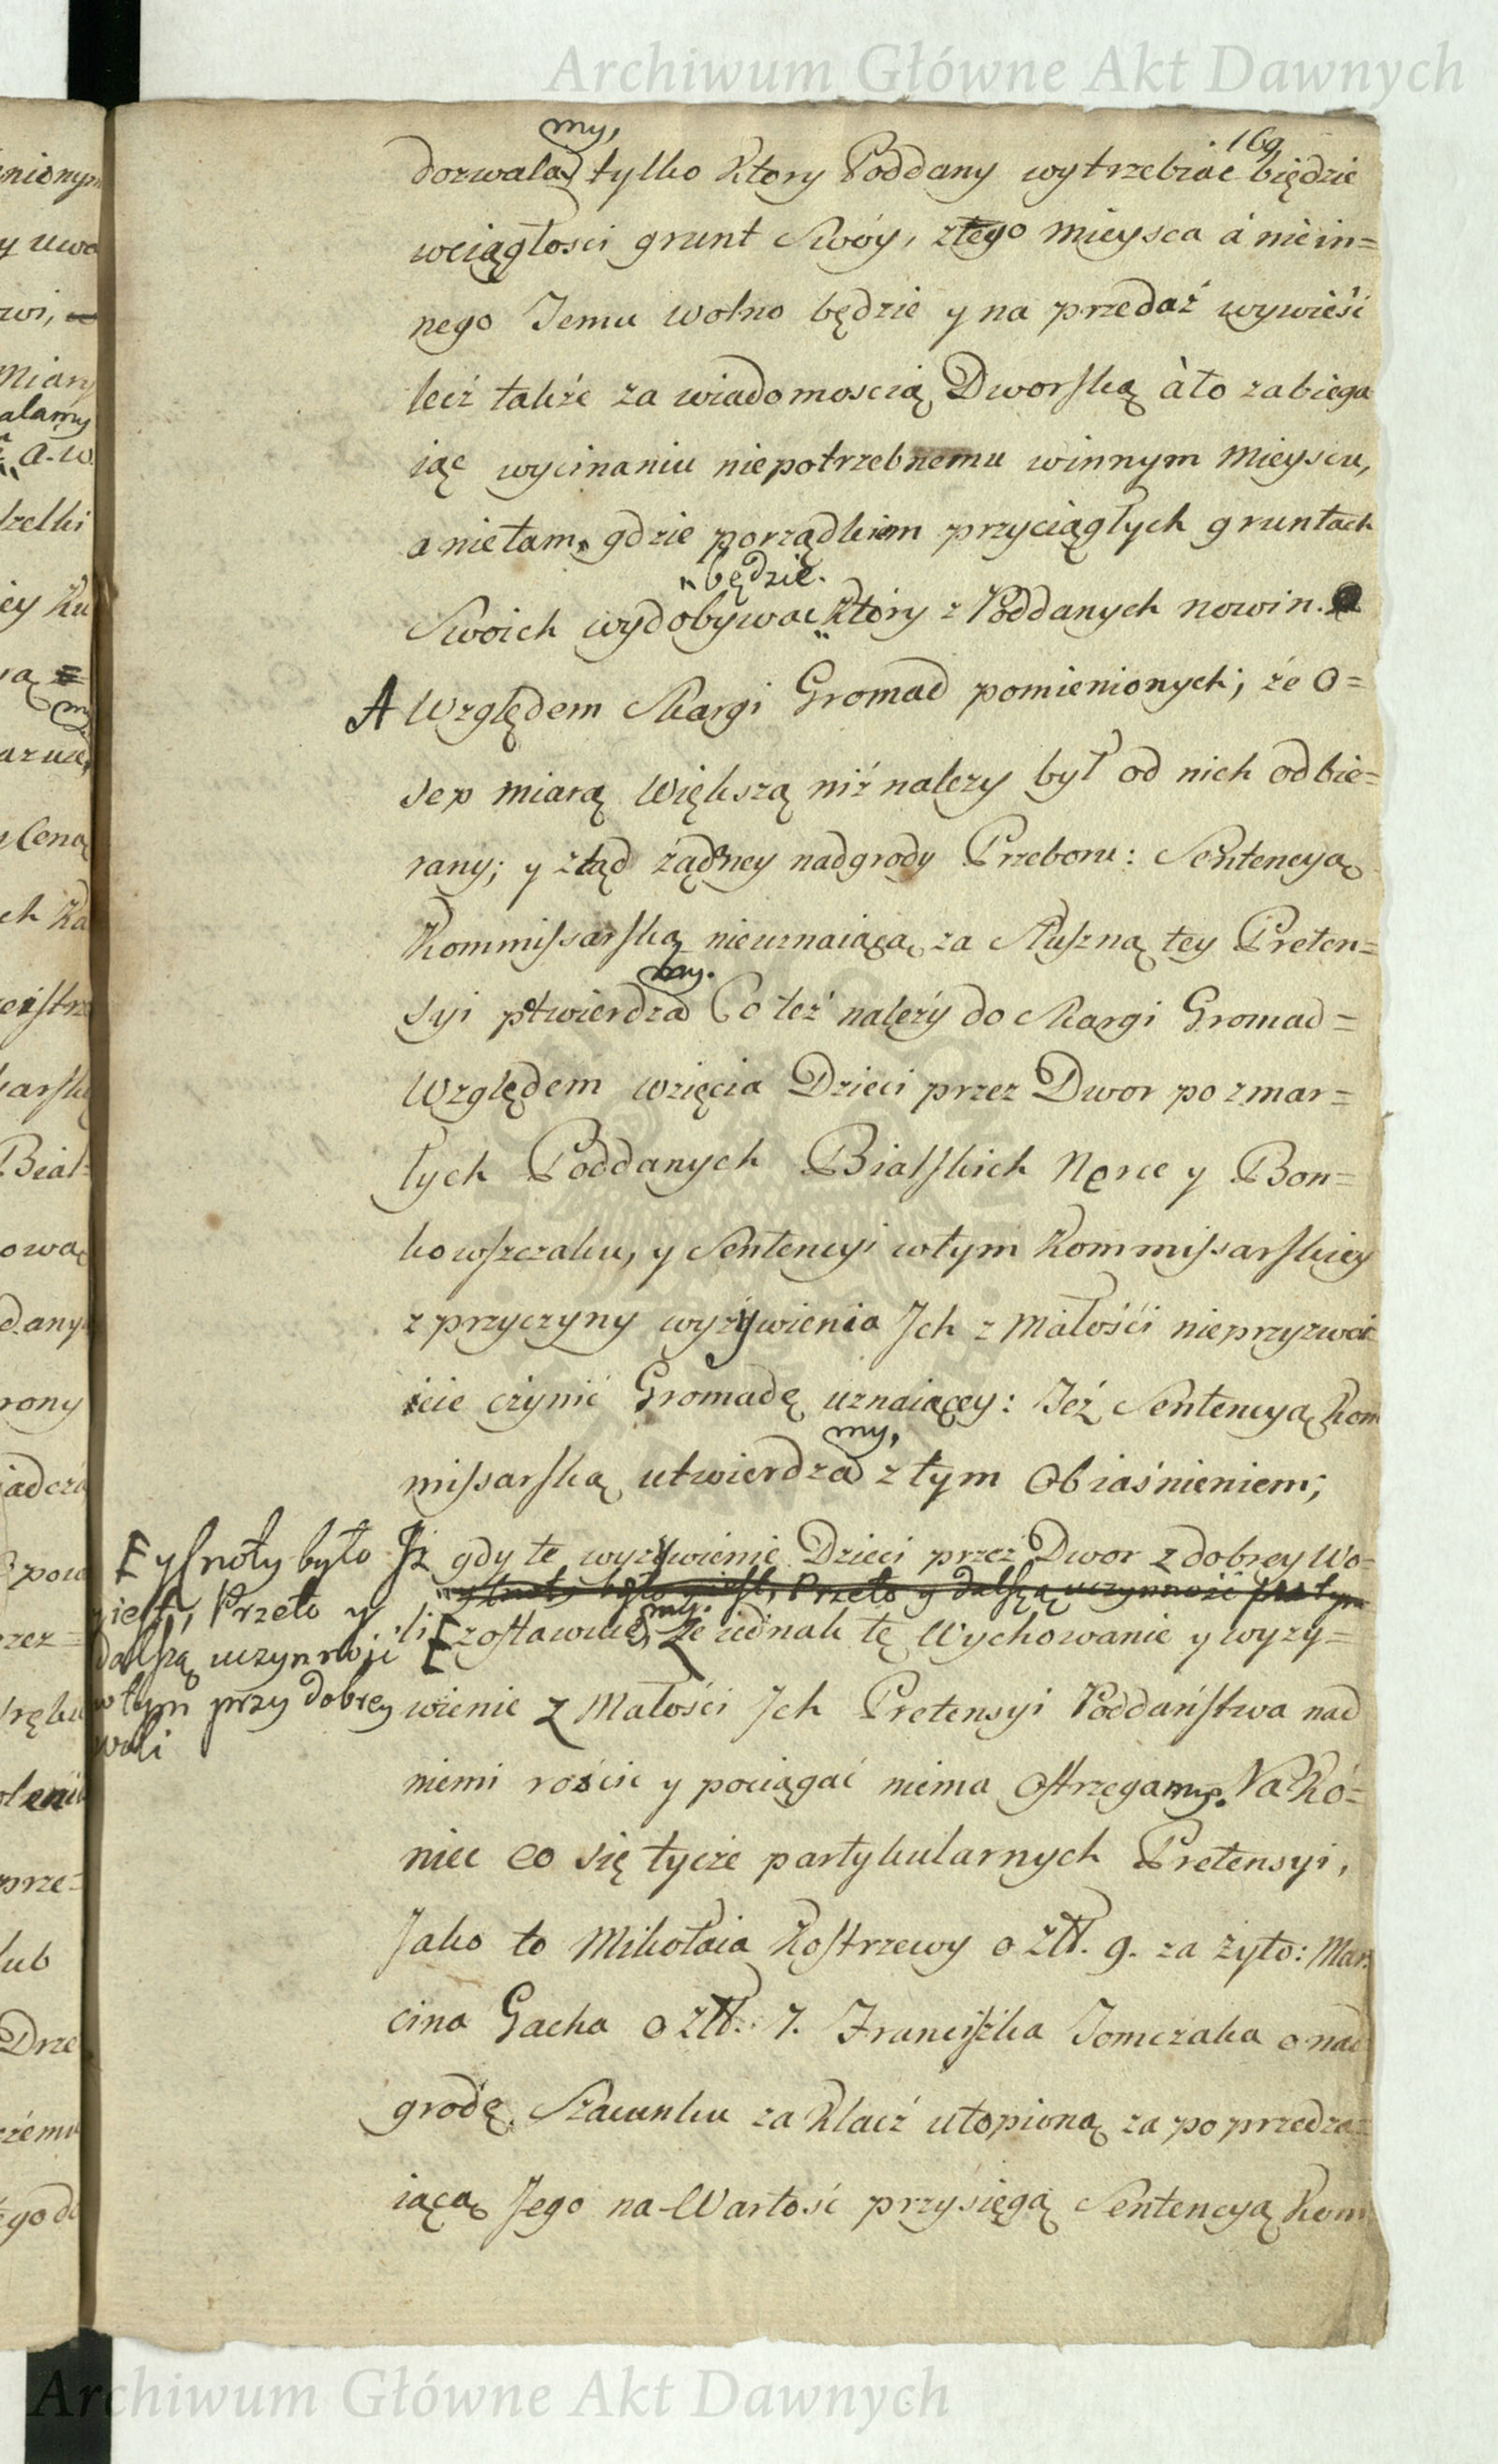 Archiwum Główne Akt Dawnych
169
my,
dozwala tylko ktory Poddany wytrzebiać będzie
wciągłosci grunt Swóy, ztego mieysca á niein=
nego Jemu wolno będzie y na przedaż wywieść
lecż także za wiadomoscią Dworską àto zabiega
iąc wycinaniu niepotrzebnemu winnym mieyscu,
a nietam, gdzie porządkiem przyciągłych gruntach
będzie.
Swoich wydobywac ktòry z Poddanych nowin.
A Względem Skargi Gromad pomienionych; że O=
sep miarą większą niż nalezy był od nich odbie=
rany; y ztąd żądney nadgrody Przeboru: Sentencyą
Kommissarską nieuznaiącą za Słuszną tey Preten=
my.
syi ptwierdza Co też należy do Skargi Gromad=
Względem wzięcia Dzieci przez Dwor po zmar=
łych Poddanych Bialskich Nęrce y Bon=
kowszczaku, y Sentencyi wtym Kommissarskiey
z przyczyny wyżywienia Jch z Małości nieprzyzwoi
icie czynić Gromadę uznaiącey: Jeż Sentencyą Kom
my,
missarską utwierdza z tym Obiaśnieniem;
Jż gdy te wyżywienie Dzieci przez Dwor z dobrey Wo=
y Cnoty było iest, Przeto y dalszą uczynność przytym
E y Cnoty było
iest, Przeto y
dalszą uczynność
wtym przy dobrey
woli
my.
li E zostawuie, Że iednak tę Wychowanie y wyzy=
wienie z Małości Jch Pretensyi Poddaństwa nad
niemi rościc y pociągać niema Ostrzegamy. Na Kó=
niec co się tycże partykularnych Pretensyi,
Jako to Mikołaia Kostrzewy o Złł. 9. za żyto: Mar=
cina Gacha o Złł. 7. Franciszka Tomczaka o nad
grodę Szacunku za Klacż utopioną za poprzedza=
iącą Jego na Wartość przysięgą Sentencyą Kom
Archiwum Główne Akt Dawnych